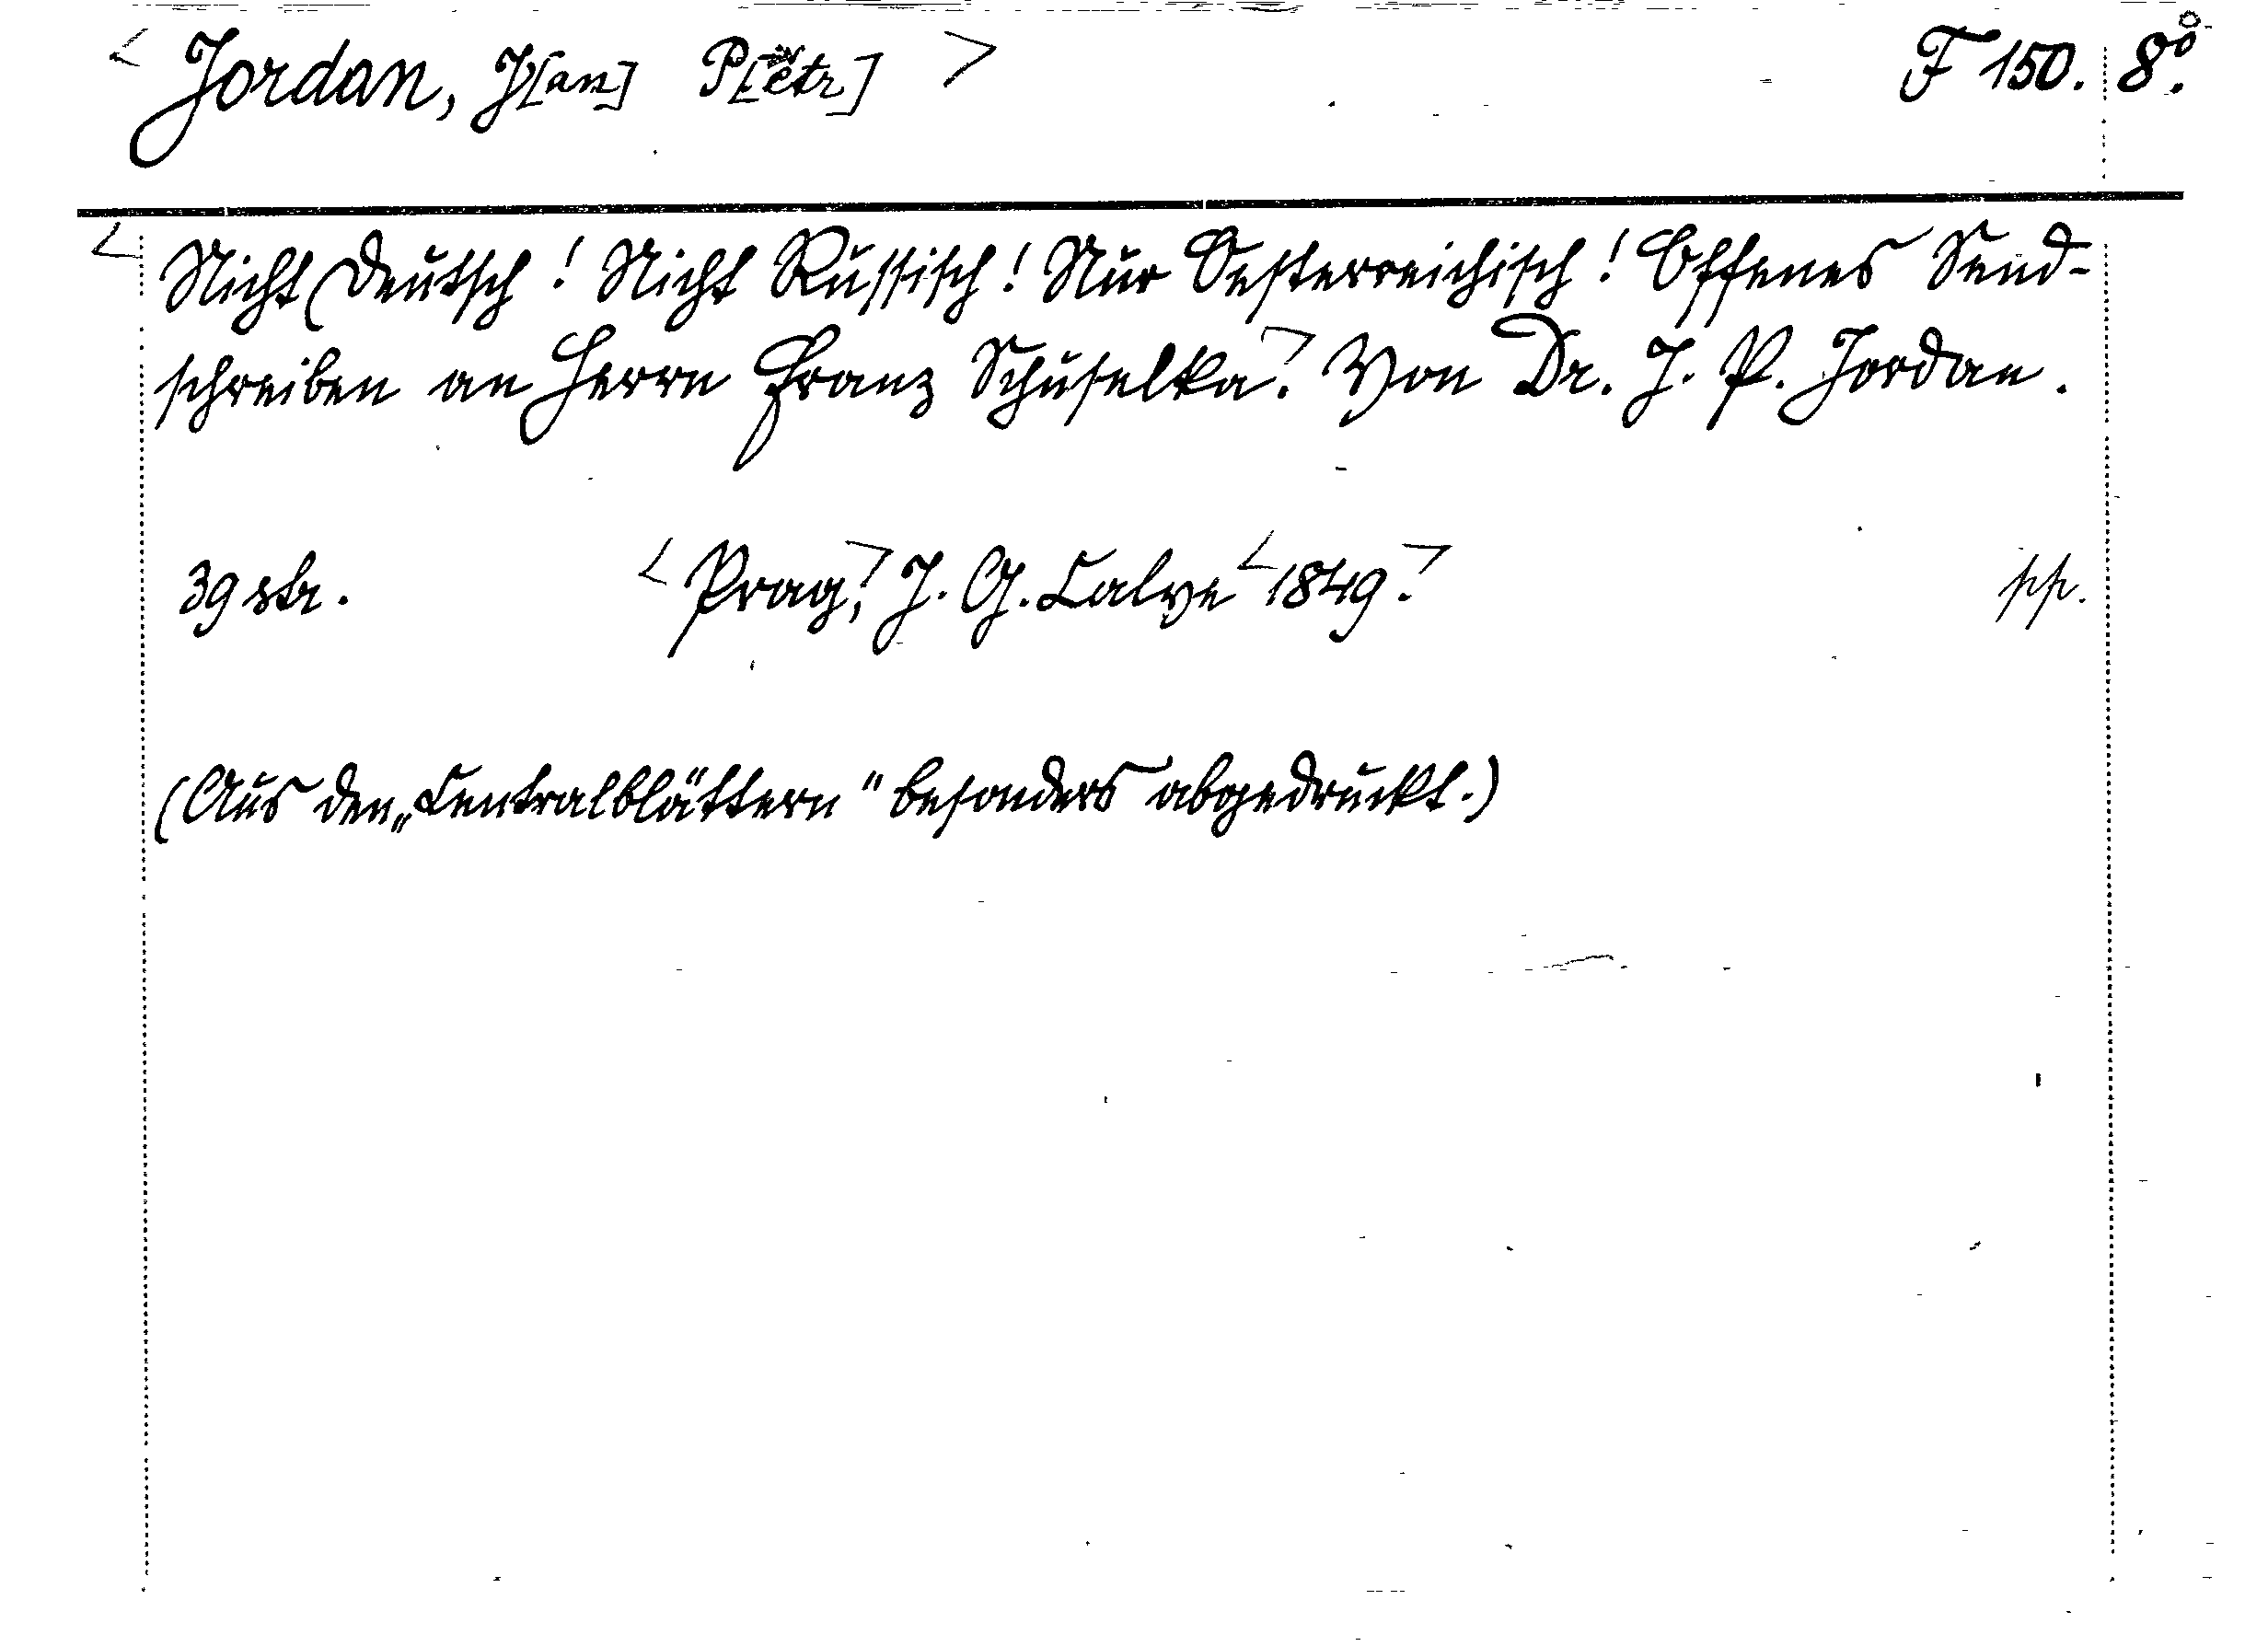 < Jordan, J[an] P[etr] > F 150. 8°.
< Nicht Deutsch! Nicht Russisch! Nur Oesterreichisch! Offenes Send-
schreiben an Herrn Franz Schuselka.> Von Dr. J. P. Jordan.
39 str. < Prag,> J. G. Calve < 1849.> pp.
(Aus den „Centralblättern“ besonders abgedruckt.)